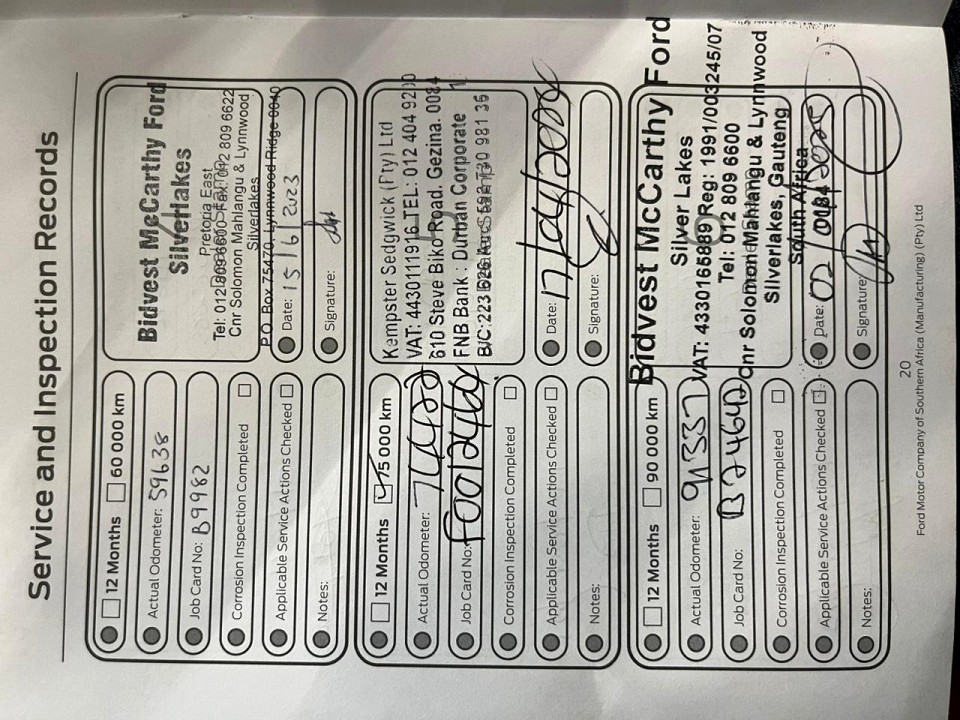 Service and Inspection Records
12 Months
60 000 km
Actual Odometer: 59638
Job Card No: B9982
Corrosion Inspection Completed
Applicable Service Actions Checked
Notes:
Bidvest McCarthy Ford
Silverlakes
Pretoria East
Tel: 012 809 6600 Fax: 012 809 6622
Cnr Solomon Mahlangu & Lynnwood
Silverlakes
P.O. Box 75470, Lynnwood Ridge 0040
Date: 15/6/2023
Signature:
12 Months
75 000 km
Actual Odometer:
Job Card No:
Corrosion Inspection Completed
Applicable Service Actions Checked
Notes:
Kempster Sedgwick (Pty) Ltd
VAT: 4430111916 TEL: 012 404 9200
610 Steve Biko Road. Gezina. 0084
FNB Bank : Durban Corporate
B/C:223 626
Date:
Signature:
12 Months
90 000 km
Actual Odometer: 91337
Job Card No: B24642
Corrosion Inspection Completed
Applicable Service Actions Checked
Notes:
Bidvest McCarthy Ford
Silver Lakes
VAT: 4330165889 Reg: 1991/003245/07
Tel: 012 809 6600
Cnr Solomon Mahlangu & Lynnwood
Silverlakes, Gauteng
South Africa
0084
Date:
Signature:
20
Ford Motor Company of Southern Africa (Manufacturing) (Pty) Ltd